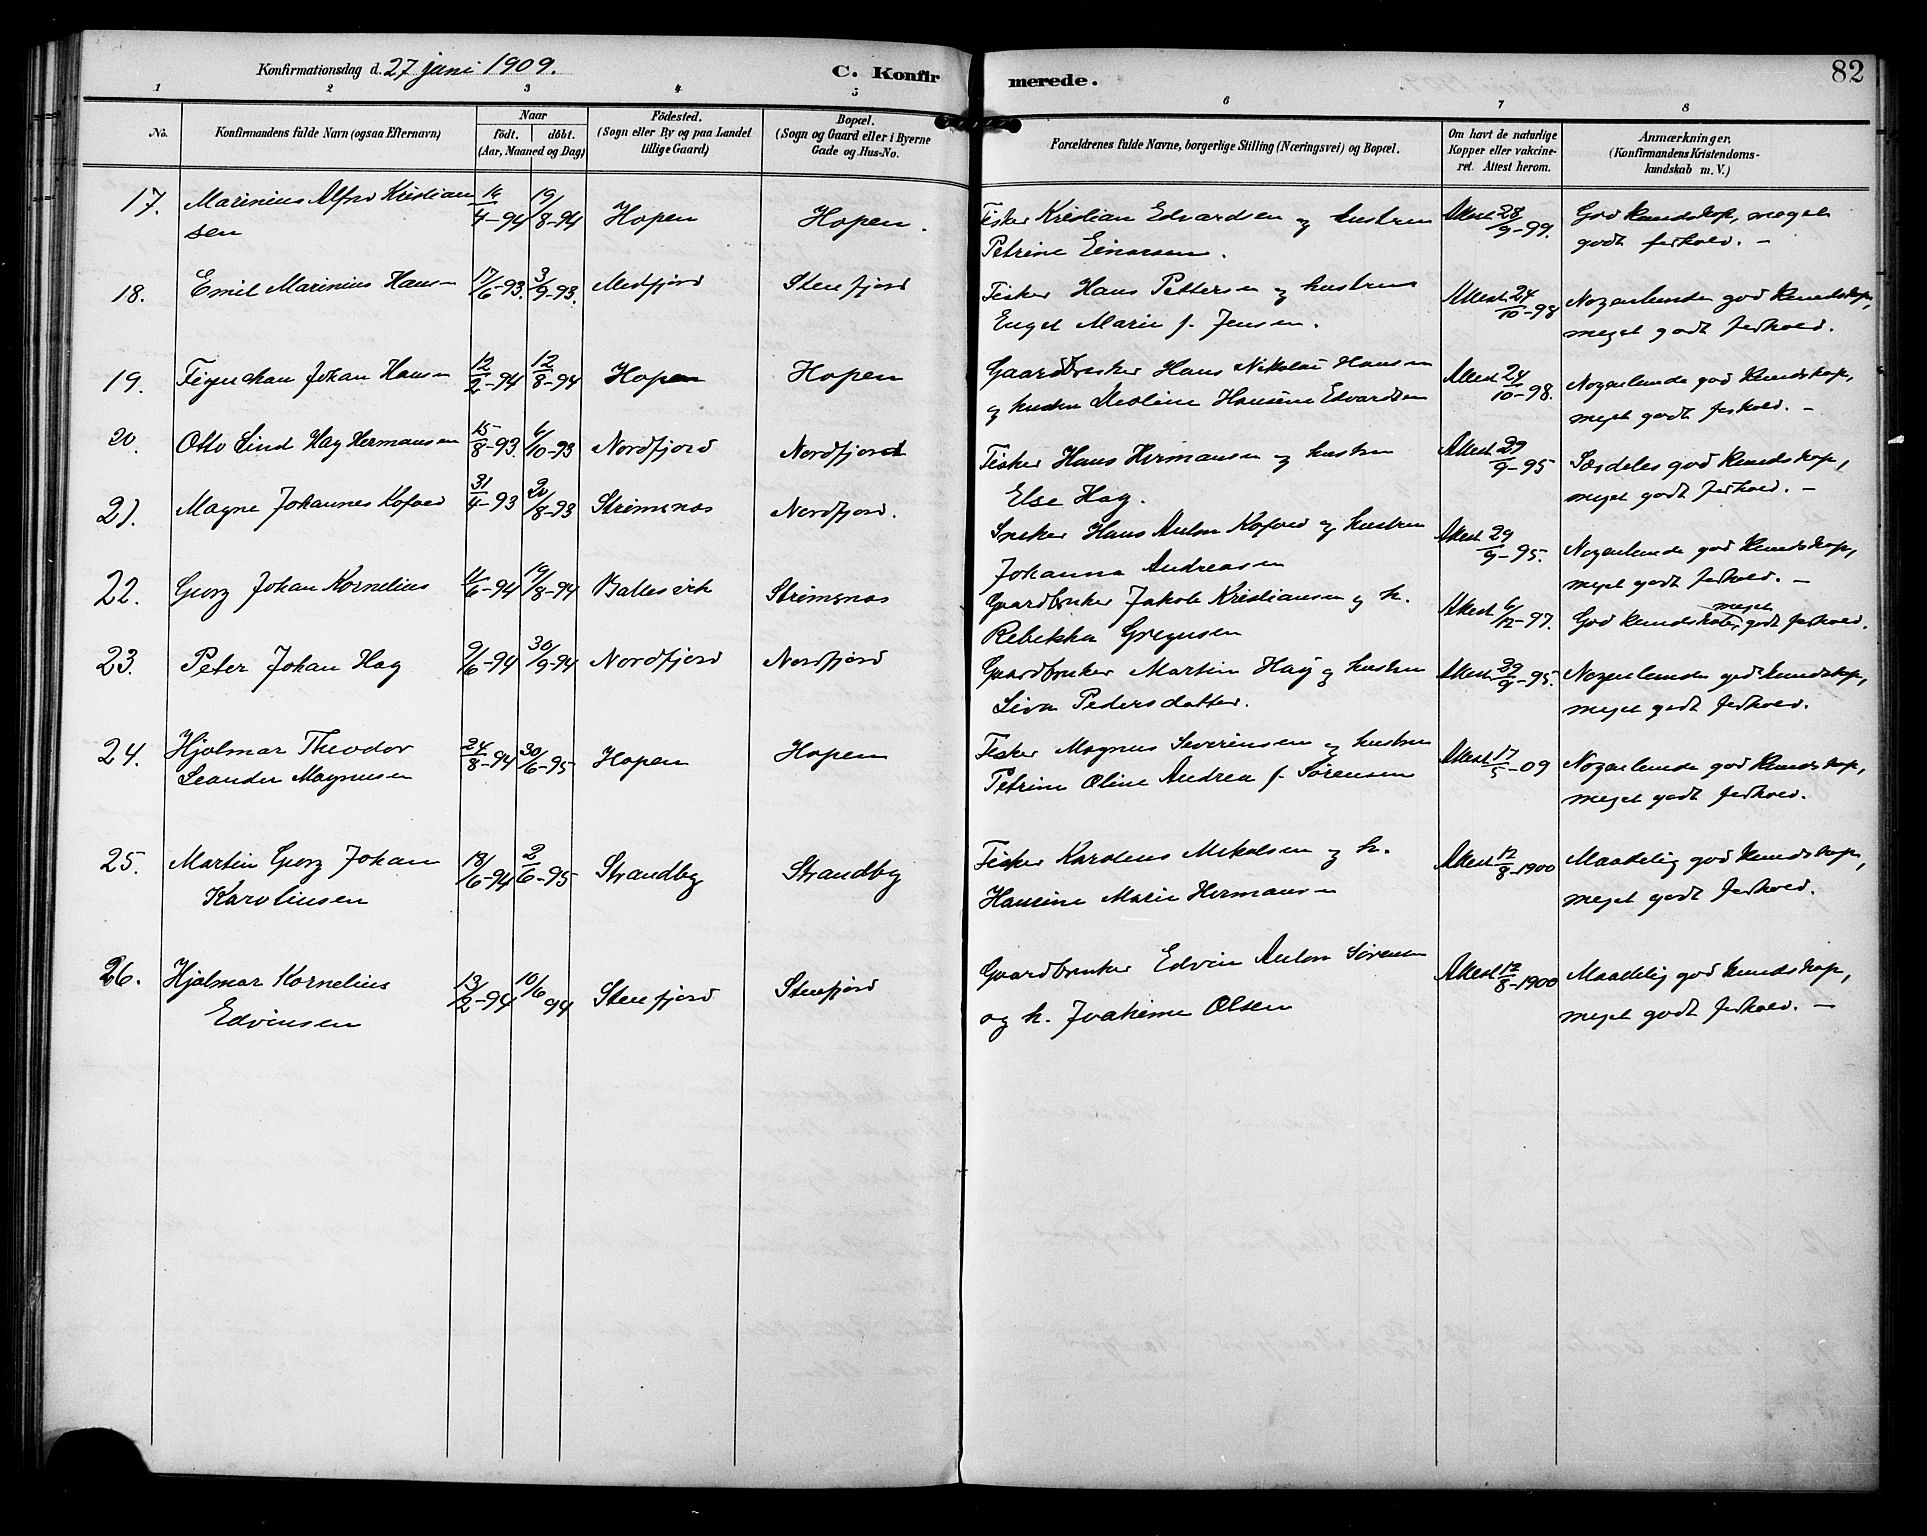 Konfirmationsdag d. 27 juni 1909.
C. Konfirmerede.
82
1 2 3 4 5 6 7 8
No.
Konfirmandens fulde Navn (ogsaa Efternavn)
Naar
födt. döbt.
(Aar, Maaned og Dag)
Födested.
(Sogn eller By og paa Landet
tillige Gaard)
Bopæl.
(Sogn og Gaard eller i Byerne
Gade og Hus-No.
Forældrenes fulde Navne, borgerlige Stilling (Næringsvei) og Bopæl.
Om havt de naturlige
Kopper eller vakcine-
ret. Attest herom.
Anmærkninger,
(Konfirmandens Kristendoms-
kundskab m. V.)
17. Marinius Alfred Kristian 16/4-94 19/8-94 Hopen Hopen. Fisker Kristian Edvardsen og hustru Attest 28/9-99. God kundskap, meget
sen Petrine Einarsen. godt forhold. –
18. Emil Marinius Hansen 17/6-93. 3/9-93. Medfjord Stenfjord Fisker Hans Pettersen og hustru Attest 24/10-98 Nogenlunde god kundskap,
Engel Marie f. Jensen. meget godt forhold.
19. Johan Hansen 12/2-94 12/8-94 Hopen Hopen Gaardbruker Hans Nikolai Hansen Attest 24/10-98. Nogenlunde god kundskap,
og hustru Hansine Edvardsen meget godt forhold. –
20. Otto Lind Hag Hermansen 15/8-93. 6/10-93 Nordfjord Nordfjord Fisker Hans Hermansen og hustru Attest 29/9-95 Særdeles god kundskap,
Else Hag. meget godt forhold. –
21. Magne Johannes Kofoed 31/4-93 20/8-93 Strömsnes Nordfjord. Sneker Hans Anton Kofoed og hustru Attest 29/9-95. Nogenlunde god kundskap,
Johanna Andreasen meget godt forhold. –
22. Georg Johan Kornelius 11/6-94 19/8-94 Ballesvik Strömsnes Gaardbruker Jakob Kristiansen og h. Attest 6/12-97. God kundskab, meget godt forhold.
Rebekka Gregusen
23. Peter Johan Hag 9/6-94 30/9-94 Nordfjord Nordfjord Gaardbruker Martin Hag og hustru Attest 29/9-95. Nogenlunde god kundskap,
Liva Pedersdatter. meget godt forhold.
24. Hjalmar Theodor 24/8-94 30/6-95 Hopen Hopen Fisker Magnus Severinsen og hustru Attest 17/5-09 Nogenlunde god kundskap,
Leander Magnusen Petrine Oline Andrea f. Sørensen meget godt forhold.
25. Martin Georg Johan 18/6-94 2/6-95 Strandby Strandby Fisker Karolius Mikalsen og h. Attest 12/8-1900 Maadelig god kundskap,
Karoliusen Hansine Marie Hermansen meget godt forhold.
26. Hjalmar Kornelius 13/2-94 10/6 94 Stenfjord Stenfjord Gaardbruker Edvin Anton Sørensen Attest 12/8-1900 Maadelig god kundskap,
Edvinsen og h. Joakime Olsen meget godt forhold. –